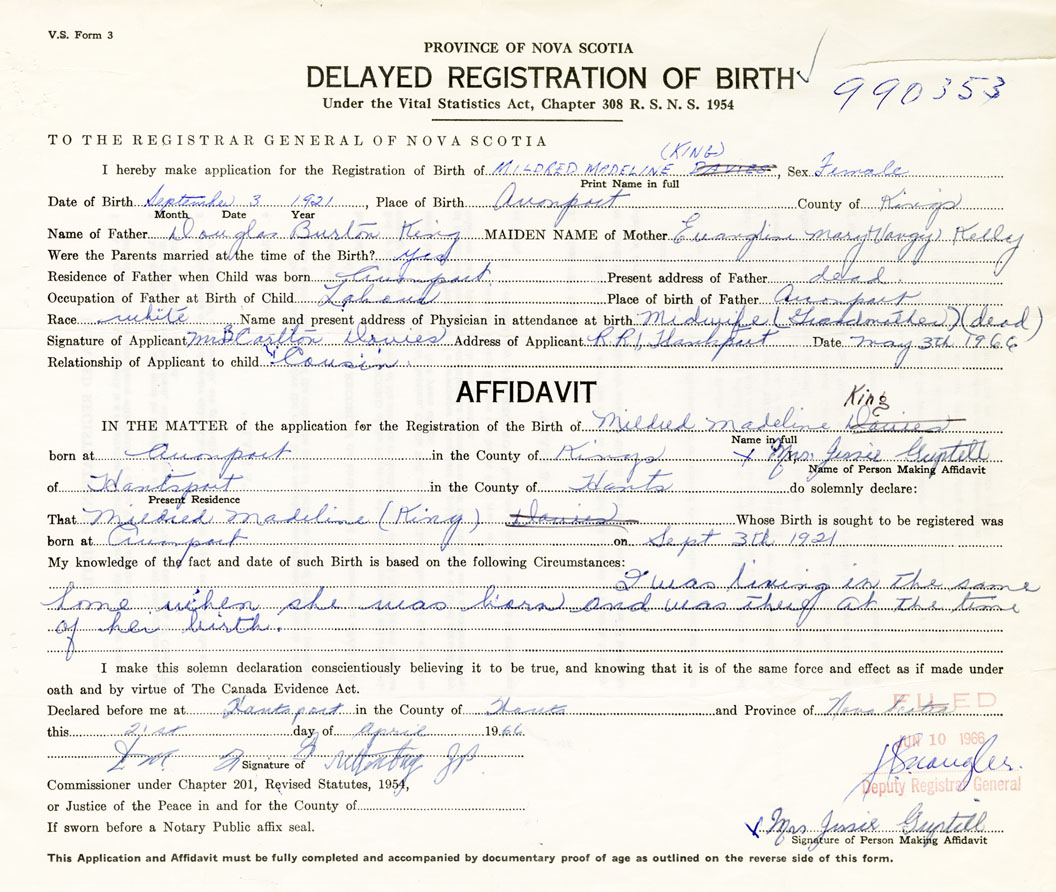 V.S. Form 3
PROVINCE OF NOVA SCOTIA
DELAYED REGISTRATION OF BIRTH
990353
Under the Vital Statistics Act, Chapter 308 R. S. N. S. 1954
TO THE REGISTRAR GENERAL OF NOVA SCOTIA
(KING)
I hereby make application for the Registration of Birth of MILDRED MADELINE DAVIES, Sex Female
Print Name in full
Date of Birth September 3 1921, Place of Birth Avonport County of Kings
Month Date Year
Name of Father Douglas Burton King MAIDEN NAME of Mother Evangline Mary (Vangy) Kelly
Were the Parents married at the time of the Birth? Yes
Residence of Father when Child was born Avonport Present address of Father dead
Occupation of Father at Birth of Child Place of birth of Father Avonport
Race white Name and present address of Physician in attendance at birth Midwife (Grandmother) (dead)
Signature of Applicant Mrs Carlton Davies Address of Applicant R.R.1, Hantsport Date May 3rd 1966
Relationship of Applicant to child Cousin
AFFIDAVIT
King
IN THE MATTER of the application for the Registration of the Birth of Mildred Madeline Davies
Name in full
born at Avonport in the County of Kings x Mrs Jessie Guptill
Name of Person Making Affidavit
of Hantsport in the County of Hants do solemnly declare:
Present Residence
That Mildred Madeline (King) Davies Whose Birth is sought to be registered was
born at Avonport on Sept 3rd 1921
My knowledge of the fact and date of such Birth is based on the following Circumstances:
I was living in the same
home when she was born and was there at the time
of her birth.
I make this solemn declaration conscientiously believing it to be true, and knowing that it is of the same force and effect as if made under
oath and by virtue of The Canada Evidence Act.
Declared before me at Hantsport in the County of Hants and Province of Nova Scotia
FILED
this 21st day of April 1966
JUN 10 1966
Signature of
Commissioner under Chapter 201, Revised Statutes, 1954,
Deputy Registrar General
or Justice of the Peace in and for the County of
If sworn before a Notary Public affix seal.
x Mrs Jessie Guptill
Signature of Person Making Affidavit
This Application and Affidavit must be fully completed and accompanied by documentary proof of age as outlined on the reverse side of this form.